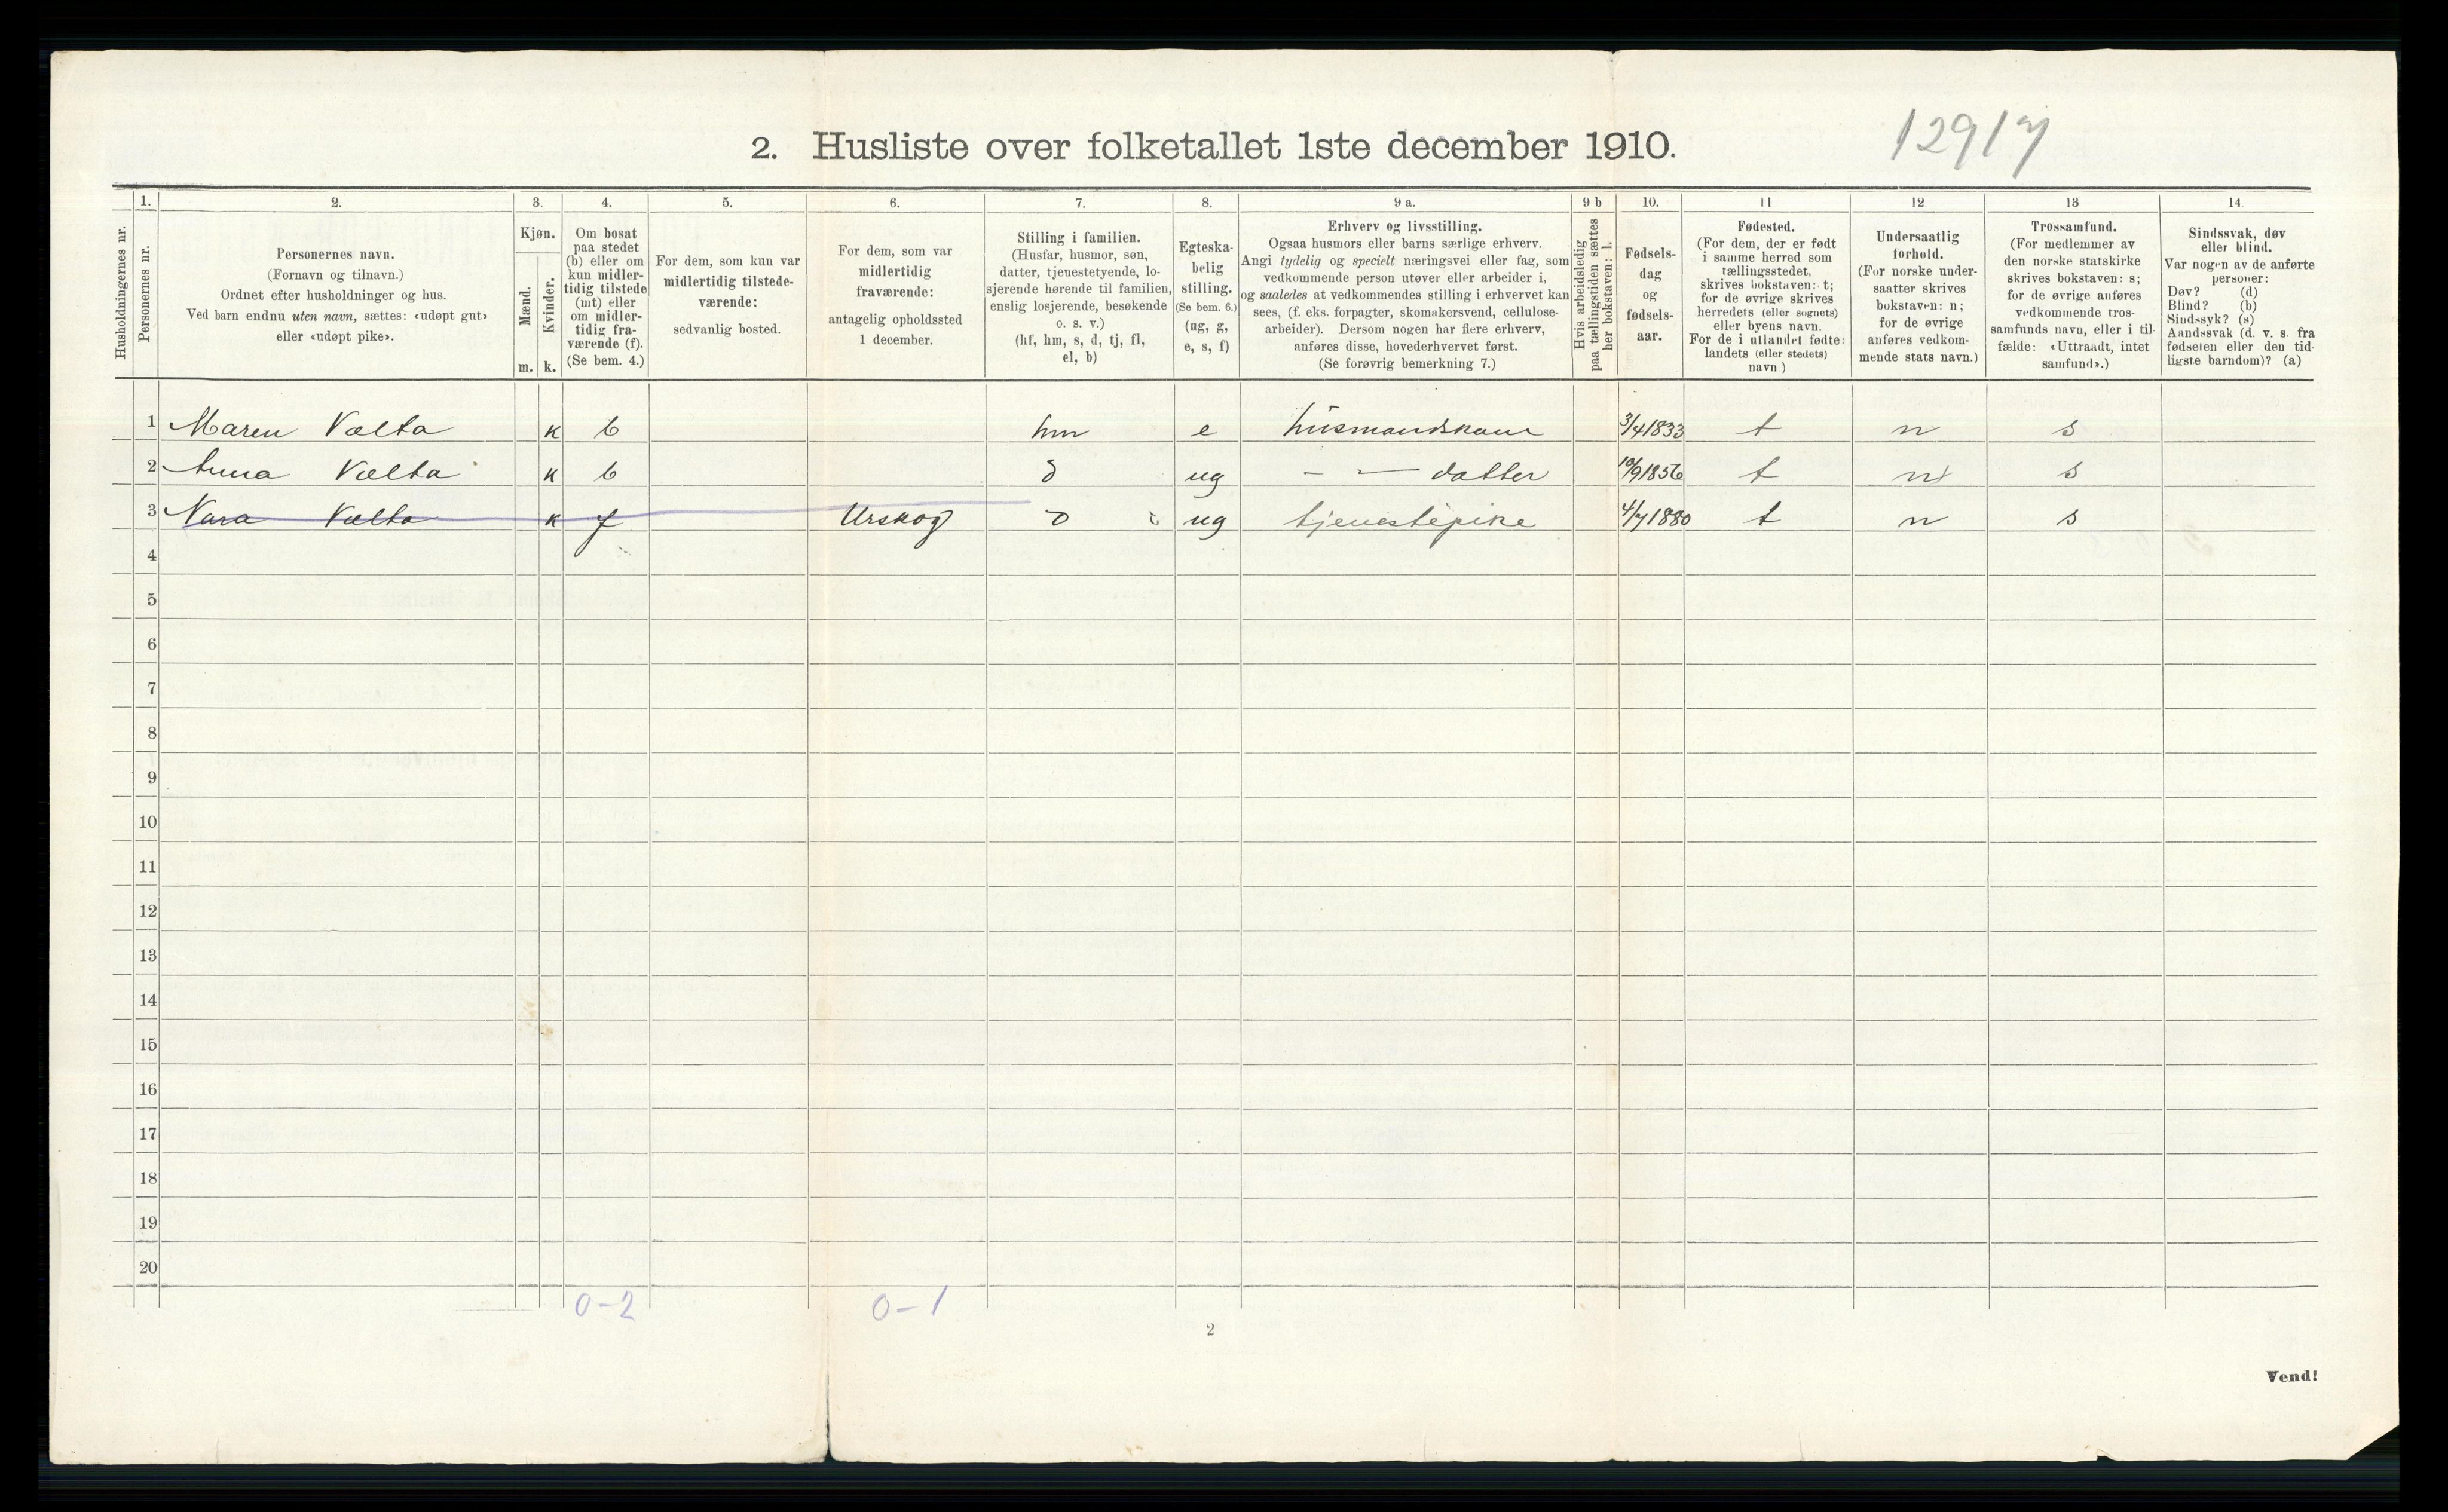 12917
2. Husliste over folketallet 1ste december 1910.
Husholdningernes nr.
1.
Personernes nr.
2.
Personernes navn.
(Fornavn og tilnavn.)
Ordnet efter husholdninger og hus.
Ved barn endnu uten navn, sættes: «udøpt gut»
eller «udøpt pike».
3.
Kjøn.
Mænd.
Kvinder.
m.
k.
4.
Om bosat
paa stedet
(b) eller om
kun midler-
tidig tilstede
(mt) eller
om midler-
tidig fra-
værende (f).
(Se bem. 4.)
5.
For dem, som kun var
midlertidig tilstede-
værende:
sedvanlig bosted.
6.
For dem, som var
midlertidig
fraværende:
antagelig opholdssted
1 december.
7.
Stilling i familien.
(Husfar, husmor, søn,
datter, tjenestetyende, lo-
sjerende hørende til familien,
enslig losjerende, besøkende
o. s. v.)
(hf, hm, s, d, tj, fl,
el, b)
8.
Egteska-
belig
stilling.
(Se bem. 6.)
(ug, g,
e, s, f)
9 a.
Erhverv og livsstilling.
Ogsaa husmors eller barns særlige erhverv.
Angi tydelig og specielt næringsvei eller fag, som
vedkommende person utøver eller arbeider i,
og saaledes at vedkommendes stilling i erhvervet kan
sees, (f. eks. forpagter, skomakersvend, cellulose-
arbeider). Dersom nogen har flere erhverv,
anføres disse, hovederhvervet først.
(Se forøvrig bemerkning 7.)
9 b
Hvis arbeidsledig
paa tællingstiden sættes
her bokstaven: l.
10.
Fødsels-
dag
og
fødsels-
aar.
11
Fødested.
(For dem, der er født
i samme herred som
tællingsstedet,
skrives bokstaven: t;
for de øvrige skrives
herredets (eller sognets)
eller byens navn.
For de i utlandet fødte:
landets (eller stedets)
navn )
12
Undersaatlig
forhold.
(For norske under-
saatter skrives
bokstaven: n;
for de øvrige
anføres vedkom-
mende stats navn.)
13
Trossamfund.
(For medlemmer av
den norske statskirke
skrives bokstaven: s;
for de øvrige anføres
vedkommende tros-
samfunds navn, eller i til-
fælde: «Uttraadt, intet
samfund».)
14.
Sindssvak, døv
eller blind.
Var nogen av de anførte
personer:
Døv? (d)
Blind? (b)
Sindssyk? (s)
Aandssvak (d. v. s. fra
fødselen eller den tid-
ligste barndom)? (a)
1 Maren Vælta k b hm e husmandskone 3/4 1833 t n s
2 Anna Vælta k b d ug - — datter 10/9 1856 t n s
3 Vælta k f Urskog d ug tjenestepike 4/7 1880 t n s
4
5
6
7
8
9
10
11
12
13
14
15
16
17
18
19
20
0-2 0-1
2
Vend!